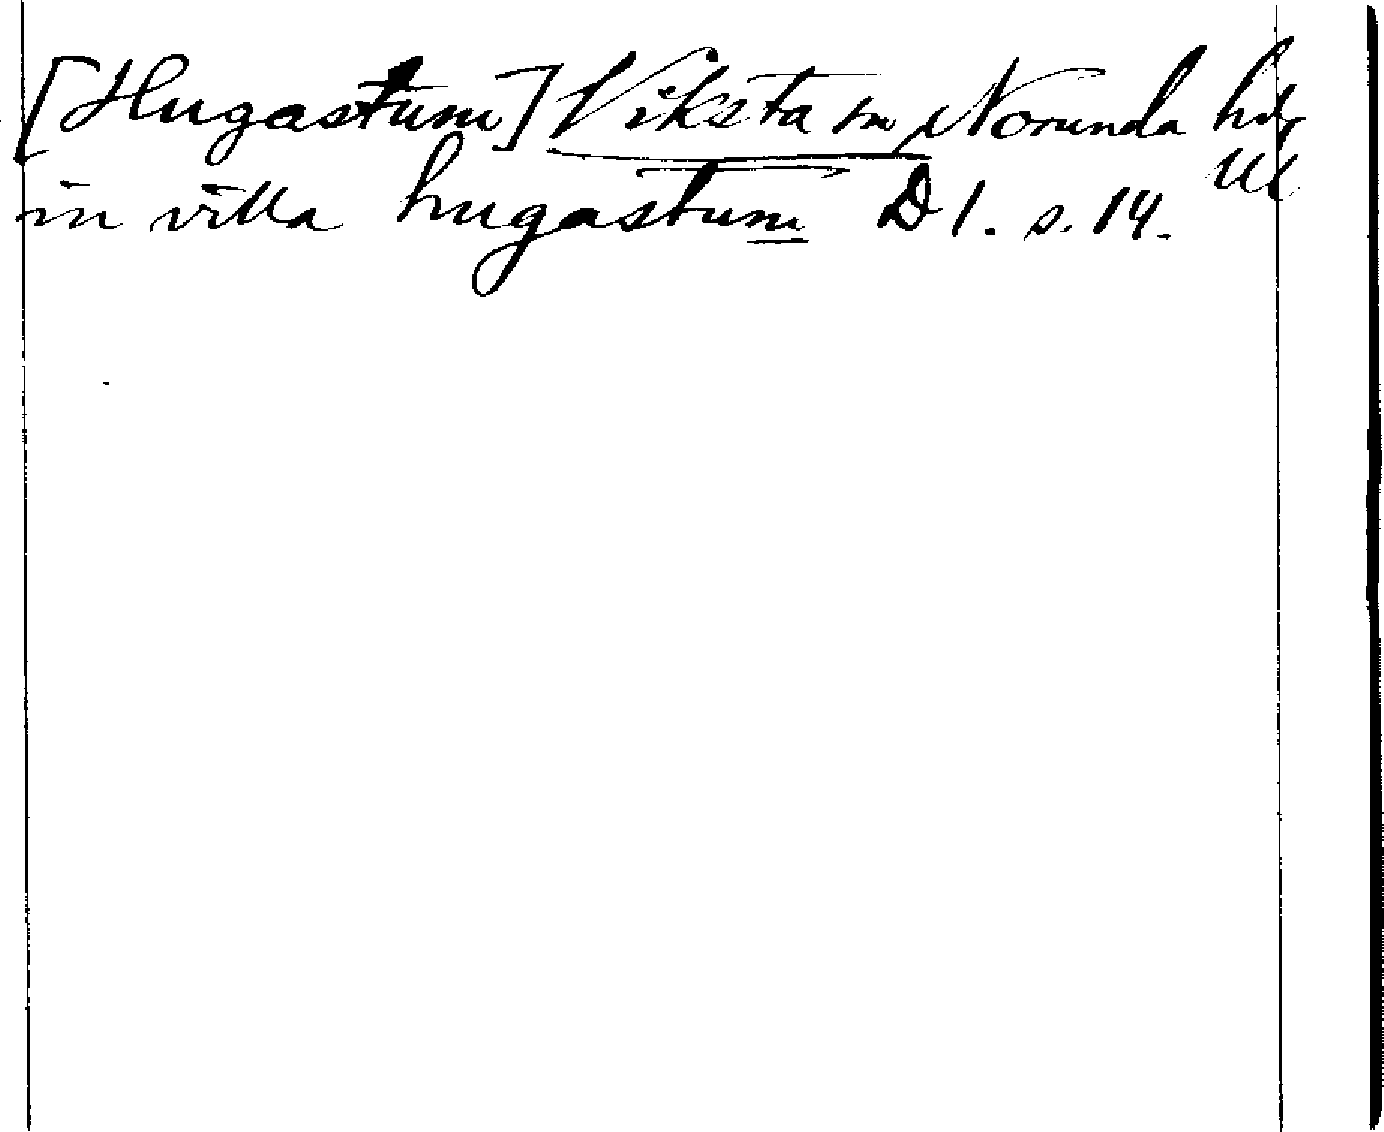 [Hugastum] Viksta sn Norunda hd
Ul
in villa hugastum D 1. s. 14.